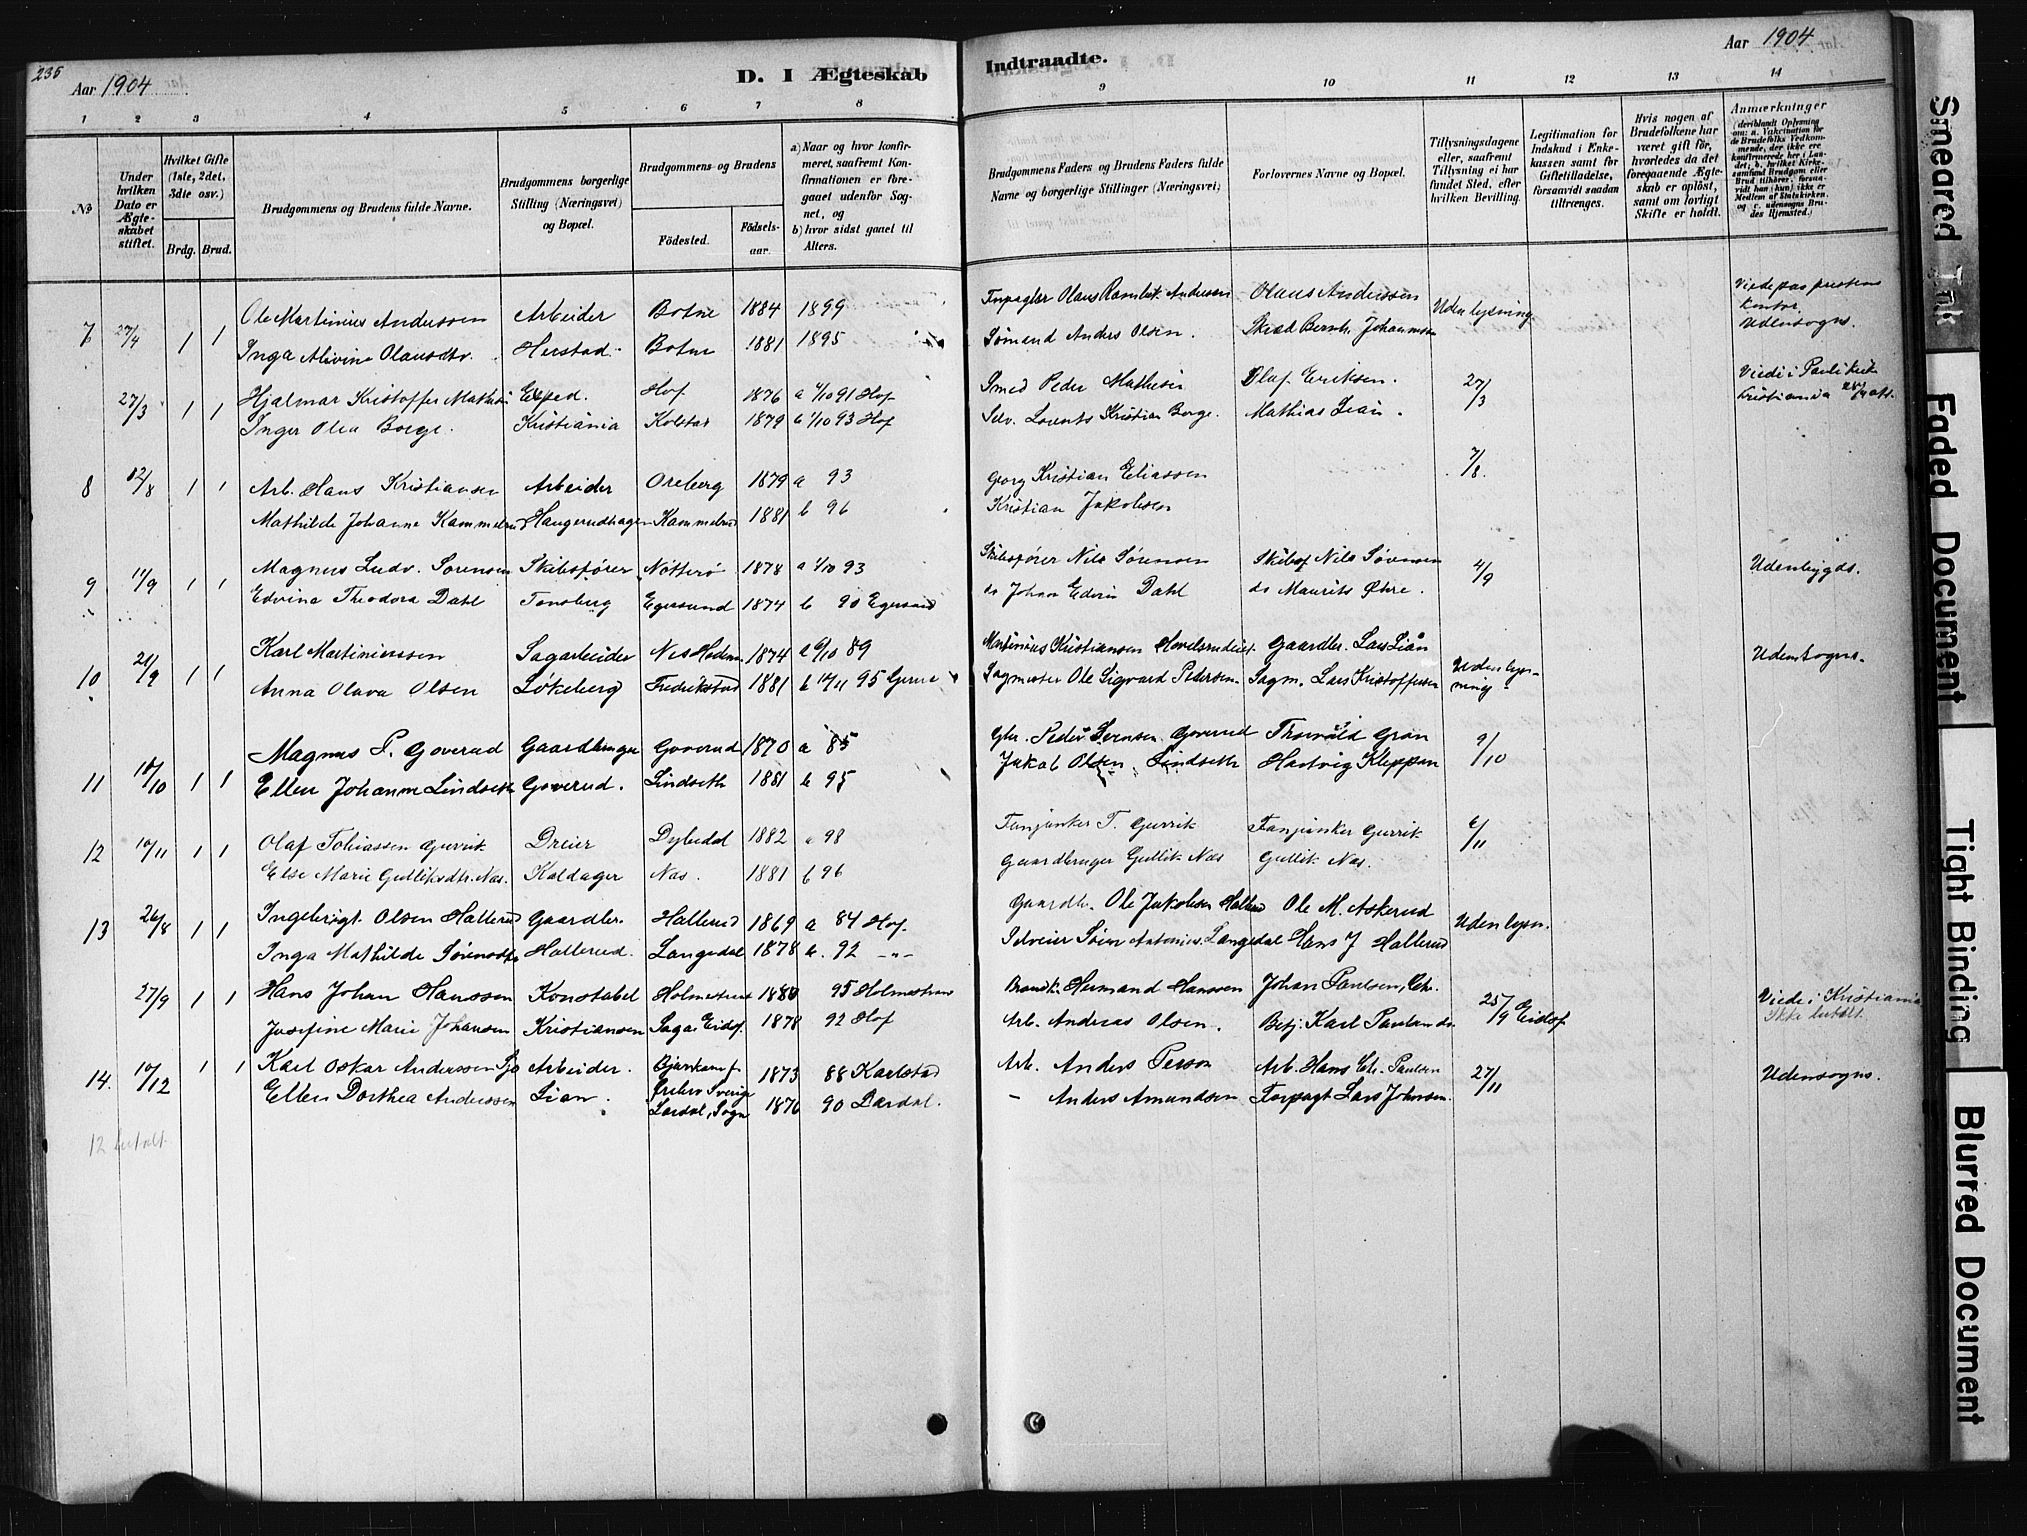 235
Aar 1904
D. I Ægteskab
Indtraadte.
Aar 1904
1 2 3 4 5 6 7 8 9 10 11 12 13 14
No
Under hvilken Dato er Ægteskabet stiftet.
Hvilket Gifte (1ste, 2det, 3die osv.)
Brdg. Brud.
Brudgommens og Brudens fulde Navne.
Brudgommens borgerlige Stilling (Næringsvei) og Bopæl.
Brudgommens og Brudens
Födested. Födselsaar.
a) Naar og hvor konfirmeret, saafremt Konfirmationen er foregaaet udenfor Sognet, og
b) hvor sidst gaaet til Alters.
Brudgommens Faders og Brudens Faders fulde Navne og borgerlige Stillinger (Næringsvei)
Forlovernes Navne og Bopæl.
Tillysningsdagene eller, saafremt Tillysning ei har fundet Sted, efter hvilken Bevilling.
Legitimation for Indskud i Enkekassen samt for Giftetilladelse, forsaavidt saadan tiltrænges.
Hvis nogen af Brudefolkene har været gift för, hvorledes da det foregaaende Ægteskab er oplöst, samt om lovligt Skifte er holdt.
Anmærkninger (deriblandt Oplysning om: a. Vakcination for de Brudefolks Vedkommende, der ikke ere konfirmerede her i Landet; b. hvilket Kirkesamfund Brudgom eller Brud tilhörer, forsaavidt han (hun) ikke er Medlem af Statskirken, og c. udensogns Brudes Hjemsted.)
7 27/4 1 1 Ole Martinius Anderssen Arbeider Botne 1884 1899 Olaus Anderssen Uden lysning Viede paa prestens kontor.
Inga Alivine Olausdtr. Herstad. Botne 1881 1895 Sömand Anders Olsen. Bernh. Johannsen Udensogns.
27/3 1 1 Hjalmar Kristoffer Exped. Hof 1876 a 4/10 91 Hof Smed Peder Mathesen Olaf Eriksen. 27/3 Viede i
Inger Olea Borge. Kristiania Kolstar 1879 b 1/10 93 Hof Selv. Lorents Kristian Borge. Mathias Lian. Kristiania
8 12/8 1 1 Arb. Hans Kristiansen Arbeider Oreberg 1879 a 93 Georg Kristian Eliassen 7/8.
Mathilde Johanne Kammelrud Haugerudhagen Kammelrud 1881 b 96 Kristian Jakobsen
9 11/9 1 1 Magnus Ludv. Sorensen Skibsfører Nötterö 1878 a 1/10 93 Skibsfører Nils Sørensen Skibsf Nils Sørensen 4/9 Udenbygds.
Edvina Theodora Dahl Tonsberg Egersund 1874 b 90 Egersund do Johan Edvin Dahl do Maurits Øhre.
10 21/9 1 1 Karl Martiniussen Sagarbeider 1874 a 6/10 89 Martinius Kristiansen Gaardbr. Lars Lian Uden lysning Udensogns.
Anna Olava Olsen Løkeberg Fredrikstad 1881 b 14/11 95 Sagmester Ole Sigvard Pedersen. Sagm. Lars Kristoffersen
11 10/10 1 1 Magnus P. Goverud Gaardbruger Goverud 1870 a 85 Gbr. Peder Sørensen Goverud Thorvald Grön 9/10
Ellen Johanne Lindseth Goverud. Lindseth 1881 b 95 Jakob Olsen Lindseth Hartvig Kleppan
12 10/11 1 1 Olaf Tobiassen Gurrik Dreier Dybedal 1882 a 98 Fanjunker T. Gurrik Fanjunker Gurrik 6/11
Else Marie Gulliksdtr. Næs. Koldager Næs. 1881 b 96 Gaardbruger Gullik Næs Gullik Næs.
13 26/8 1 1 Ingebrigt Olsen Hallerud Gaardbr. Hallerud 1869 a 84 Hof. Gaardb. Ole Jakobsen Hallerud Ole M. Askerud Uden lysn.
Inga Mathilde Sørensdtr Hallerud. Langedal 1878 b. 92 -"- Selveier Søren Antonius. Langedal Hans J Hallerud
27/9 1 1 Hans Johan Hanssen Konstabel Holmestrand 1880 95 Holmestrand Brandk. Hermand Hanssen Johan Paulsen, Chr. 25/9 Eidsf. Viede i Kristiania
Josefine Marie Johansen Kristiansen Eidsf. 1878 92 Hof Arb. Andreas Olsen. Betj. Karl Ikke betalt.
14. 10/12 1 1 Karl Oskar Anderssen Arbeider. 1873 88 Karlstad Arb. Anders Person Arb. Hans Chr. Paulsen 27/11 Udensogns.
Ellen Dorthea Anderssen Lian. Lærdal, Sogn 1876 90 Lærdal. - Anders Amundsen Forpagt Lars Johnsen.
12 betalt
Smeared Ink
Faded Document
Tight Binding
Blurred Document